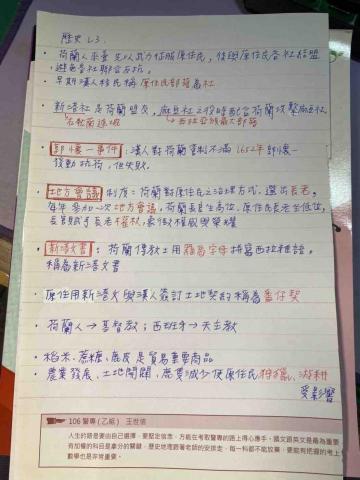 歷史 L3.
• 荷蘭人來臺先以武力征服原住民，後與原住民各社結盟
避免各社聯合反抗。
• 早期漢人移民稱原住民部落為社
• 新港社是荷蘭盟友，麻豆社之役時配合荷蘭攻擊麻豆社。
→在熱蘭遮城 →西拉雅族最大部落
• 郭懷一事件：漢人對荷蘭管制不滿 1652年郭懷一
發動抗荷，但失敗。
• 地方會議制度：荷蘭對原住民之治理方式．選出長老。
每年參加一次地方會議，荷蘭長官坐高位、原住民長老坐低位，
長官賦予長老權杖，象徵權威與榮耀
• 新港文書：荷蘭傳教士用羅馬字母拼寫西拉雅語。
稱為新港文書
• 原住用新港文與漢人簽訂土地契約稱為番仔契
• 荷蘭人→基督教；西班牙→天主教
• 稻米、蔗糖、鹿皮是貿易重要商品
• 農業發展、土地開闢，鹿隻減少使原住民狩獵、游耕
受影響
106 警專(乙組) 王世信
人生的路是要由自己選擇，要堅定信念，方能在考取警專的路上得心應手。國文跟英文是最為重要
有加權的科目是拿分的關鍵，歷史地理跟著老師的安排走，每一科都不能放棄，要能有把握的考上
數學也是非常重要。